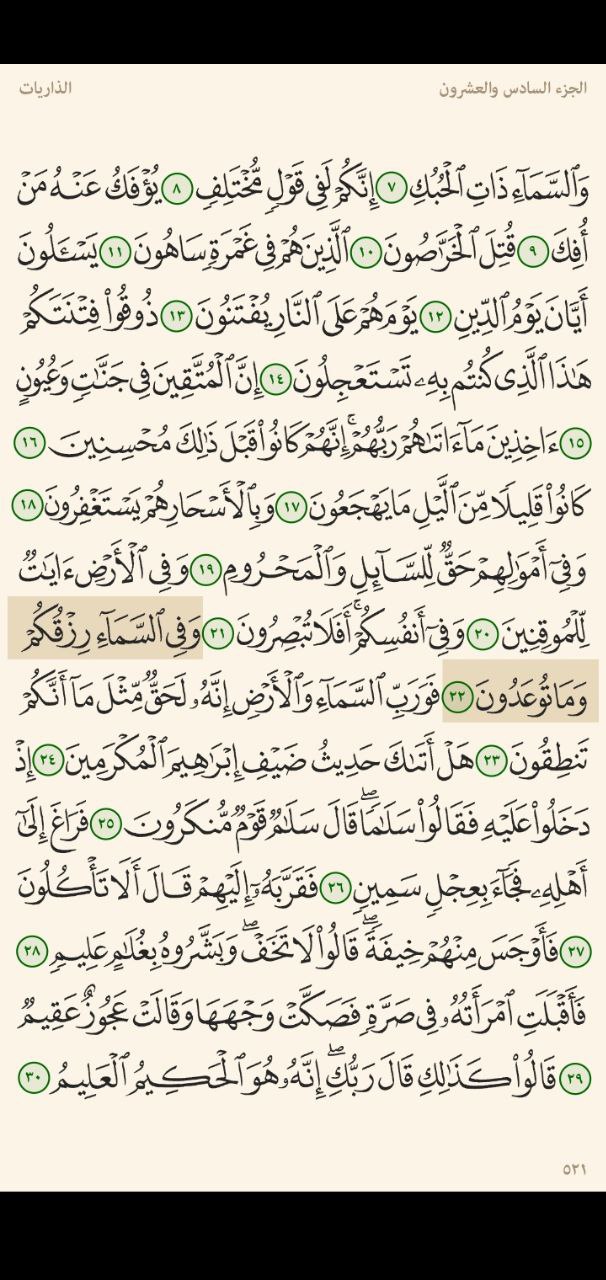 الجزء السادس والعشرون
الذاريات
وَٱلسَّمَآءِ ذَاتِ ٱلْحُبُكِ ٧ إِنَّكُمْ لَفِى قَوْلٍ مُّخْتَلِفٍ ٨ يُؤْفَكُ عَنْهُ مَنْ
أُفِكَ ٩ قُتِلَ ٱلْخَرَّٰصُونَ ١٠ ٱلَّذِينَ هُمْ فِى غَمْرَةٍ سَاهُونَ ١١ يَسْـَٔلُونَ
أَيَّانَ يَوْمُ ٱلدِّينِ ١٢ يَوْمَ هُمْ عَلَى ٱلنَّارِ يُفْتَنُونَ ١٣ ذُوقُوا۟ فِتْنَتَكُمْ
هَٰذَا ٱلَّذِى كُنتُم بِهِۦ تَسْتَعْجِلُونَ ١٤ إِنَّ ٱلْمُتَّقِينَ فِى جَنَّٰتٍ وَعُيُونٍ
١٥ ءَاخِذِينَ مَآ ءَاتَىٰهُمْ رَبُّهُمْ ۚ إِنَّهُمْ كَانُوا۟ قَبْلَ ذَٰلِكَ مُحْسِنِينَ ١٦
كَانُوا۟ قَلِيلًا مِّنَ ٱلَّيْلِ مَا يَهْجَعُونَ ١٧ وَبِٱلْأَسْحَارِ هُمْ يَسْتَغْفِرُونَ ١٨
وَفِىٓ أَمْوَٰلِهِمْ حَقٌّ لِّلسَّآئِلِ وَٱلْمَحْرُومِ ١٩ وَفِى ٱلْأَرْضِ ءَايَٰتٌ
لِّلْمُوقِنِينَ ٢٠ وَفِىٓ أَنفُسِكُمْ ۚ أَفَلَا تُبْصِرُونَ ٢١ وَفِى ٱلسَّمَآءِ رِزْقُكُمْ
وَمَا تُوعَدُونَ ٢٢ فَوَرَبِّ ٱلسَّمَآءِ وَٱلْأَرْضِ إِنَّهُۥ لَحَقٌّ مِّثْلَ مَآ أَنَّكُمْ
تَنطِقُونَ ٢٣ هَلْ أَتَىٰكَ حَدِيثُ ضَيْفِ إِبْرَٰهِيمَ ٱلْمُكْرَمِينَ ٢٤ إِذْ
دَخَلُوا۟ عَلَيْهِ فَقَالُوا۟ سَلَٰمًا ۖ قَالَ سَلَٰمٌ قَوْمٌ مُّنكَرُونَ ٢٥ فَرَاغَ إِلَىٰٓ
أَهْلِهِۦ فَجَآءَ بِعِجْلٍ سَمِينٍ ٢٦ فَقَرَّبَهُۥٓ إِلَيْهِمْ قَالَ أَلَا تَأْكُلُونَ
٢٧ فَأَوْجَسَ مِنْهُمْ خِيفَةً ۖ قَالُوا۟ لَا تَخَفْ ۖ وَبَشَّرُوهُ بِغُلَٰمٍ عَلِيمٍ ٢٨
فَأَقْبَلَتِ ٱمْرَأَتُهُۥ فِى صَرَّةٍ فَصَكَّتْ وَجْهَهَا وَقَالَتْ عَجُوزٌ عَقِيمٌ
٢٩ قَالُوا۟ كَذَٰلِكِ قَالَ رَبُّكِ ۖ إِنَّهُۥ هُوَ ٱلْحَكِيمُ ٱلْعَلِيمُ ٣٠
٥٢١